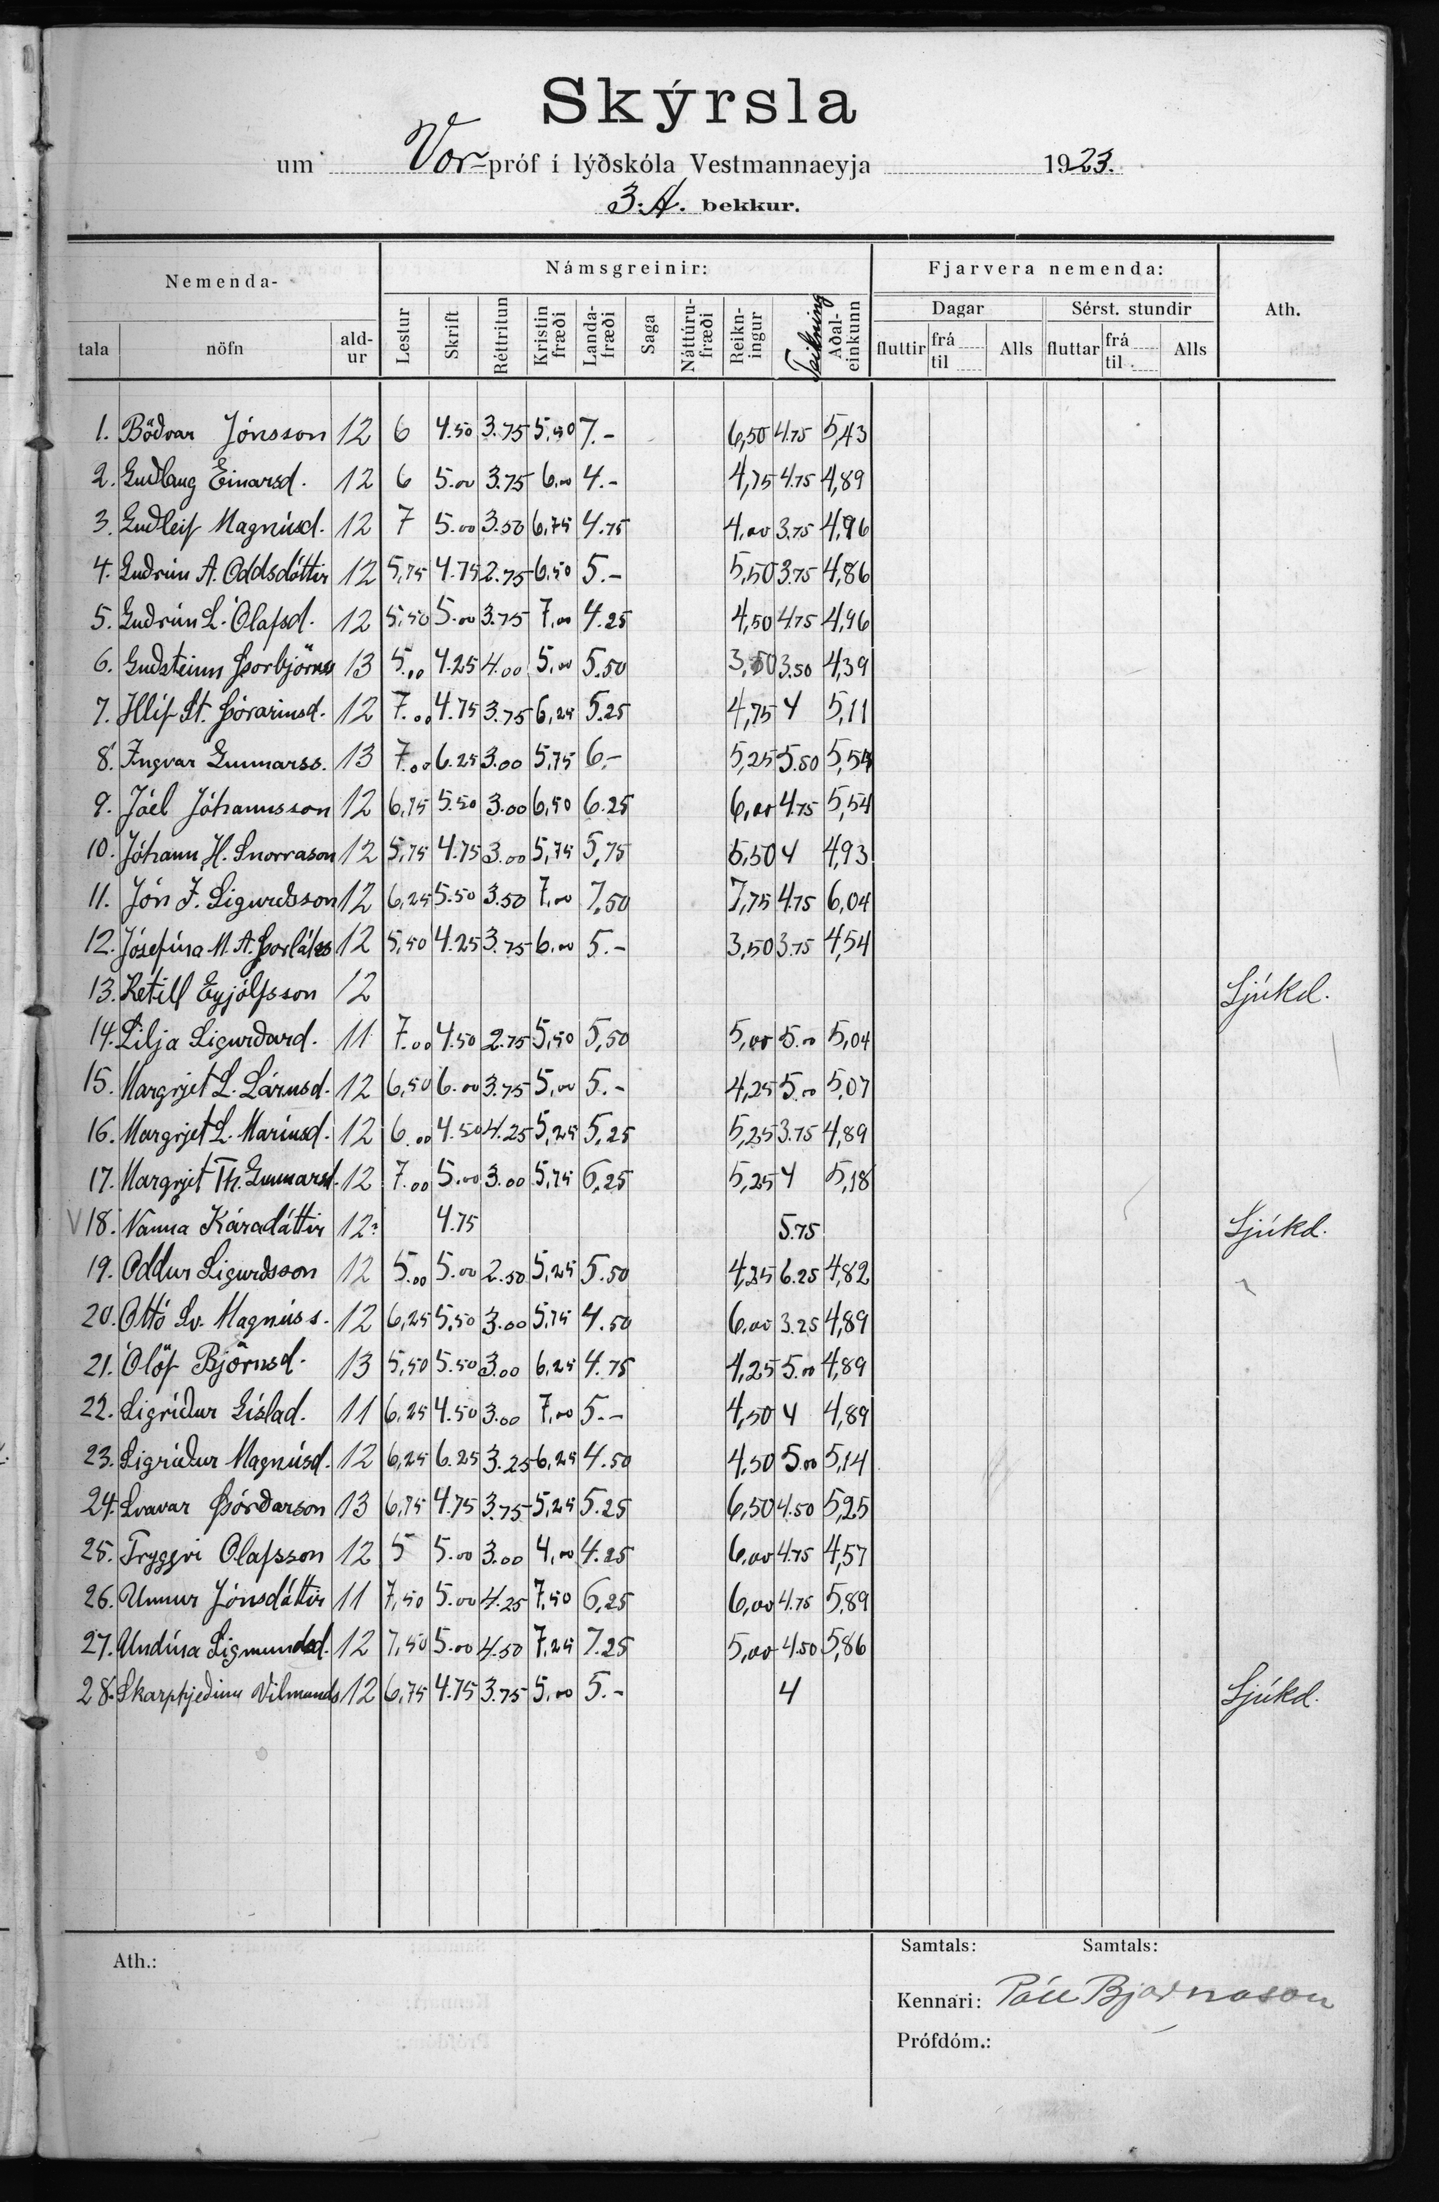 Skýrsla
um Vor-próf í lýðskóla Vestmannaeyja 1923.
3. A. bekkur.
Nemenda- Námsgreinir: Fjarvera nemenda: Ath.
tala nöfn ald-ur Lestur Skrift Réttritun Kristin fræði Landa-fræði Saga Náttúru-fræði Reikn-ingur Teikning Aðal-einkunn Dagar fluttir frá til Alls Sérst. stundir fluttar frá til Alls
1. Böðvar Jónsson 12 6 4.50 3.75 5,50 7.- 6,50 4.75 5,43
2. Guðlaug Einarsd. 12 6 5.00 3.75 6,00 4.- 4,75 4.75 4,89
3. Guðleif Magnúsd. 12 7 5.00 3.50 6,75 4.75 4,00 3.75 4,96
4. Guðrún A. Oddsdóttir 12 5,75 4.75 2.75 6,50 5.- 5,50 3.75 4,86
5. Guðrún L. Ólafsd. 12 5,50 5.00 3.75 7,00 4.25 4,50 4.75 4,96
6. Guðsteinn Þorbjörns 13 5.00 4.25 4.00 5,00 5.50 3,50 3.50 4,39
7. Hlíf St. Þórarinsd. 12 7.00 4.75 3.75 6,25 5.25 4,75 4 5,11
8. Ingvar Gunnarss. 13 7.00 6.25 3.00 5,75 6.- 5,25 5.50 5,54
9. Jóel Jóhannsson 12 6,75 5.50 3.00 6,50 6.25 6,00 4.75 5,54
10. Jóhann H. Snorrason 12 5,75 4.75 3.00 5,75 5,75 5,50 4 4,93
11. Jón I. Sigurðsson 12 6,25 5.50 3.50 7,00 7,50 7,75 4.75 6,04
12. Jósefína M. A. Þorláks 12 5,50 4.25 3.75 6,00 5.- 3,50 3.75 4,54
13. Ketill Eyjólfsson 12 Sjúkd.
14. Lilja Sigurðard. 11 7.00 4.50 2.75 5,50 5,50 5,00 5.00 5,04
15. Margrjet L. Lárusd. 12 6,50 6.00 3.75 5,00 5.- 4,25 5.00 5,07
16. Margrjet L. Maríusd. 12 6.00 4.50 4.25 5,25 5,25 5,25 3.75 4,89
17. Margrjet Th. Gunnarsd. 12 7.00 5.00 3.00 5,75 6,25 5,25 4 5,18
V 18. Nanna Káradóttir 12? 4.75 5.75 Sjúkd.
19. Oddur Sigurðsson 12 5.00 5.00 2.50 5,25 5.50 4,25 6.25 4,82
20. Ottó Sv. Magnúss. 12 6,25 5,50 3.00 5,75 4.50 6,00 3.25 4,89
21. Ólöf Björnsd. 13 5,50 5.50 3.00 6,25 4.75 4,25 5.00 4,89
22. Sigríður Gíslad. 11 6,25 4.50 3.00 7,00 5.- 4,50 4 4,89
23. Sigríður Magnúsd. 12 6,25 6.25 3.25 6,25 4.50 4,50 5.00 5,14
24. Svavar Þórðarson 13 6,75 4.75 3.75 5,25 5.25 6,50 4.50 5,25
25. Tryggvi Olafsson 12 5 5.00 3.00 4,00 4.25 6,00 4.75 4,57
26. Unnur Jónsdóttir 11 7,50 5.00 4.25 7,50 6,25 6,00 4.75 5,89
27. Undína Sigmundsd. 12 7,50 5.00 4.50 7,25 7.25 5,00 4.50 5,86
28. Skarphjeðinn Vilmunds 12 6,75 4.75 3.75 5,00 5.- 4 Sjúkd.
Ath.: Samtals: Samtals:
Kennari: Páll Bjarnason
Prófdóm.: